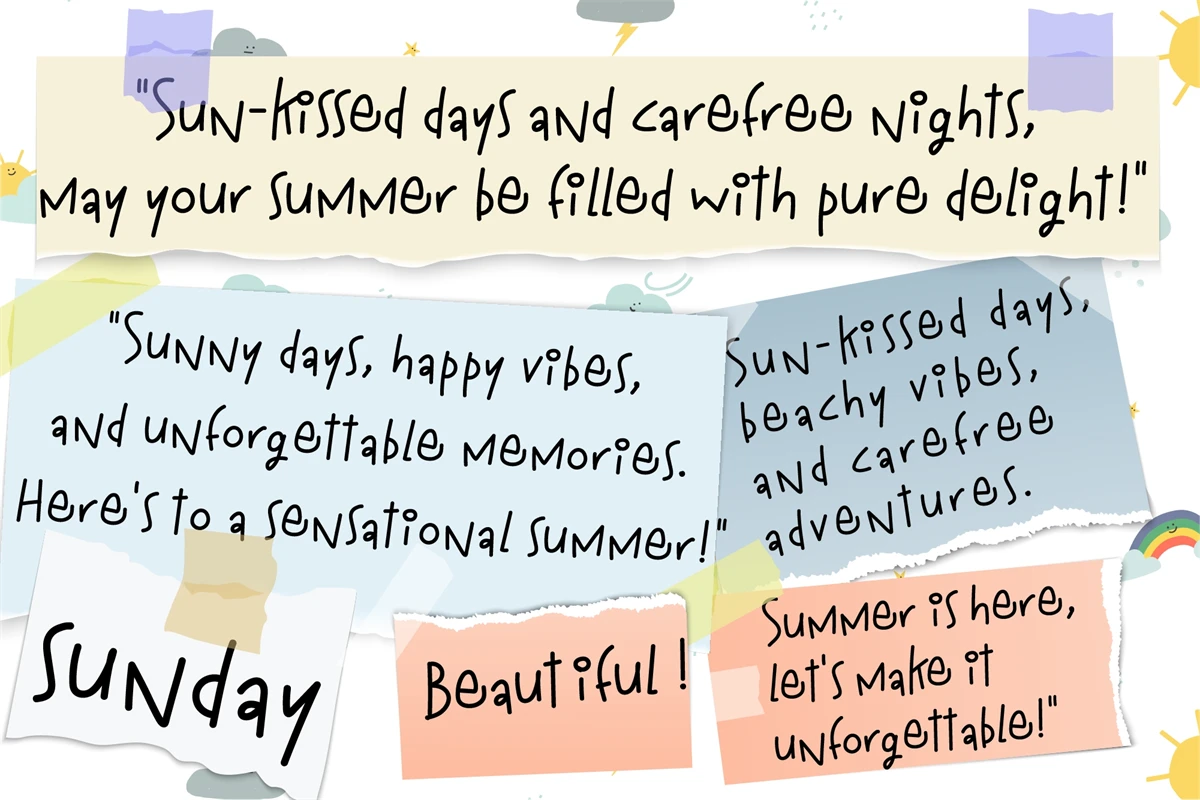 "Sun-kissed days and carefree nights,
may your summer be filled with pure delight!"
"Sunny days, happy vibes,
and unforgettable memories.
Here's to a sensational summer!"
Sun-kissed days,
beachy vibes,
and carefree
adventures.
Sunday
Beautiful!
Summer is here,
let's make it
unforgettable!"